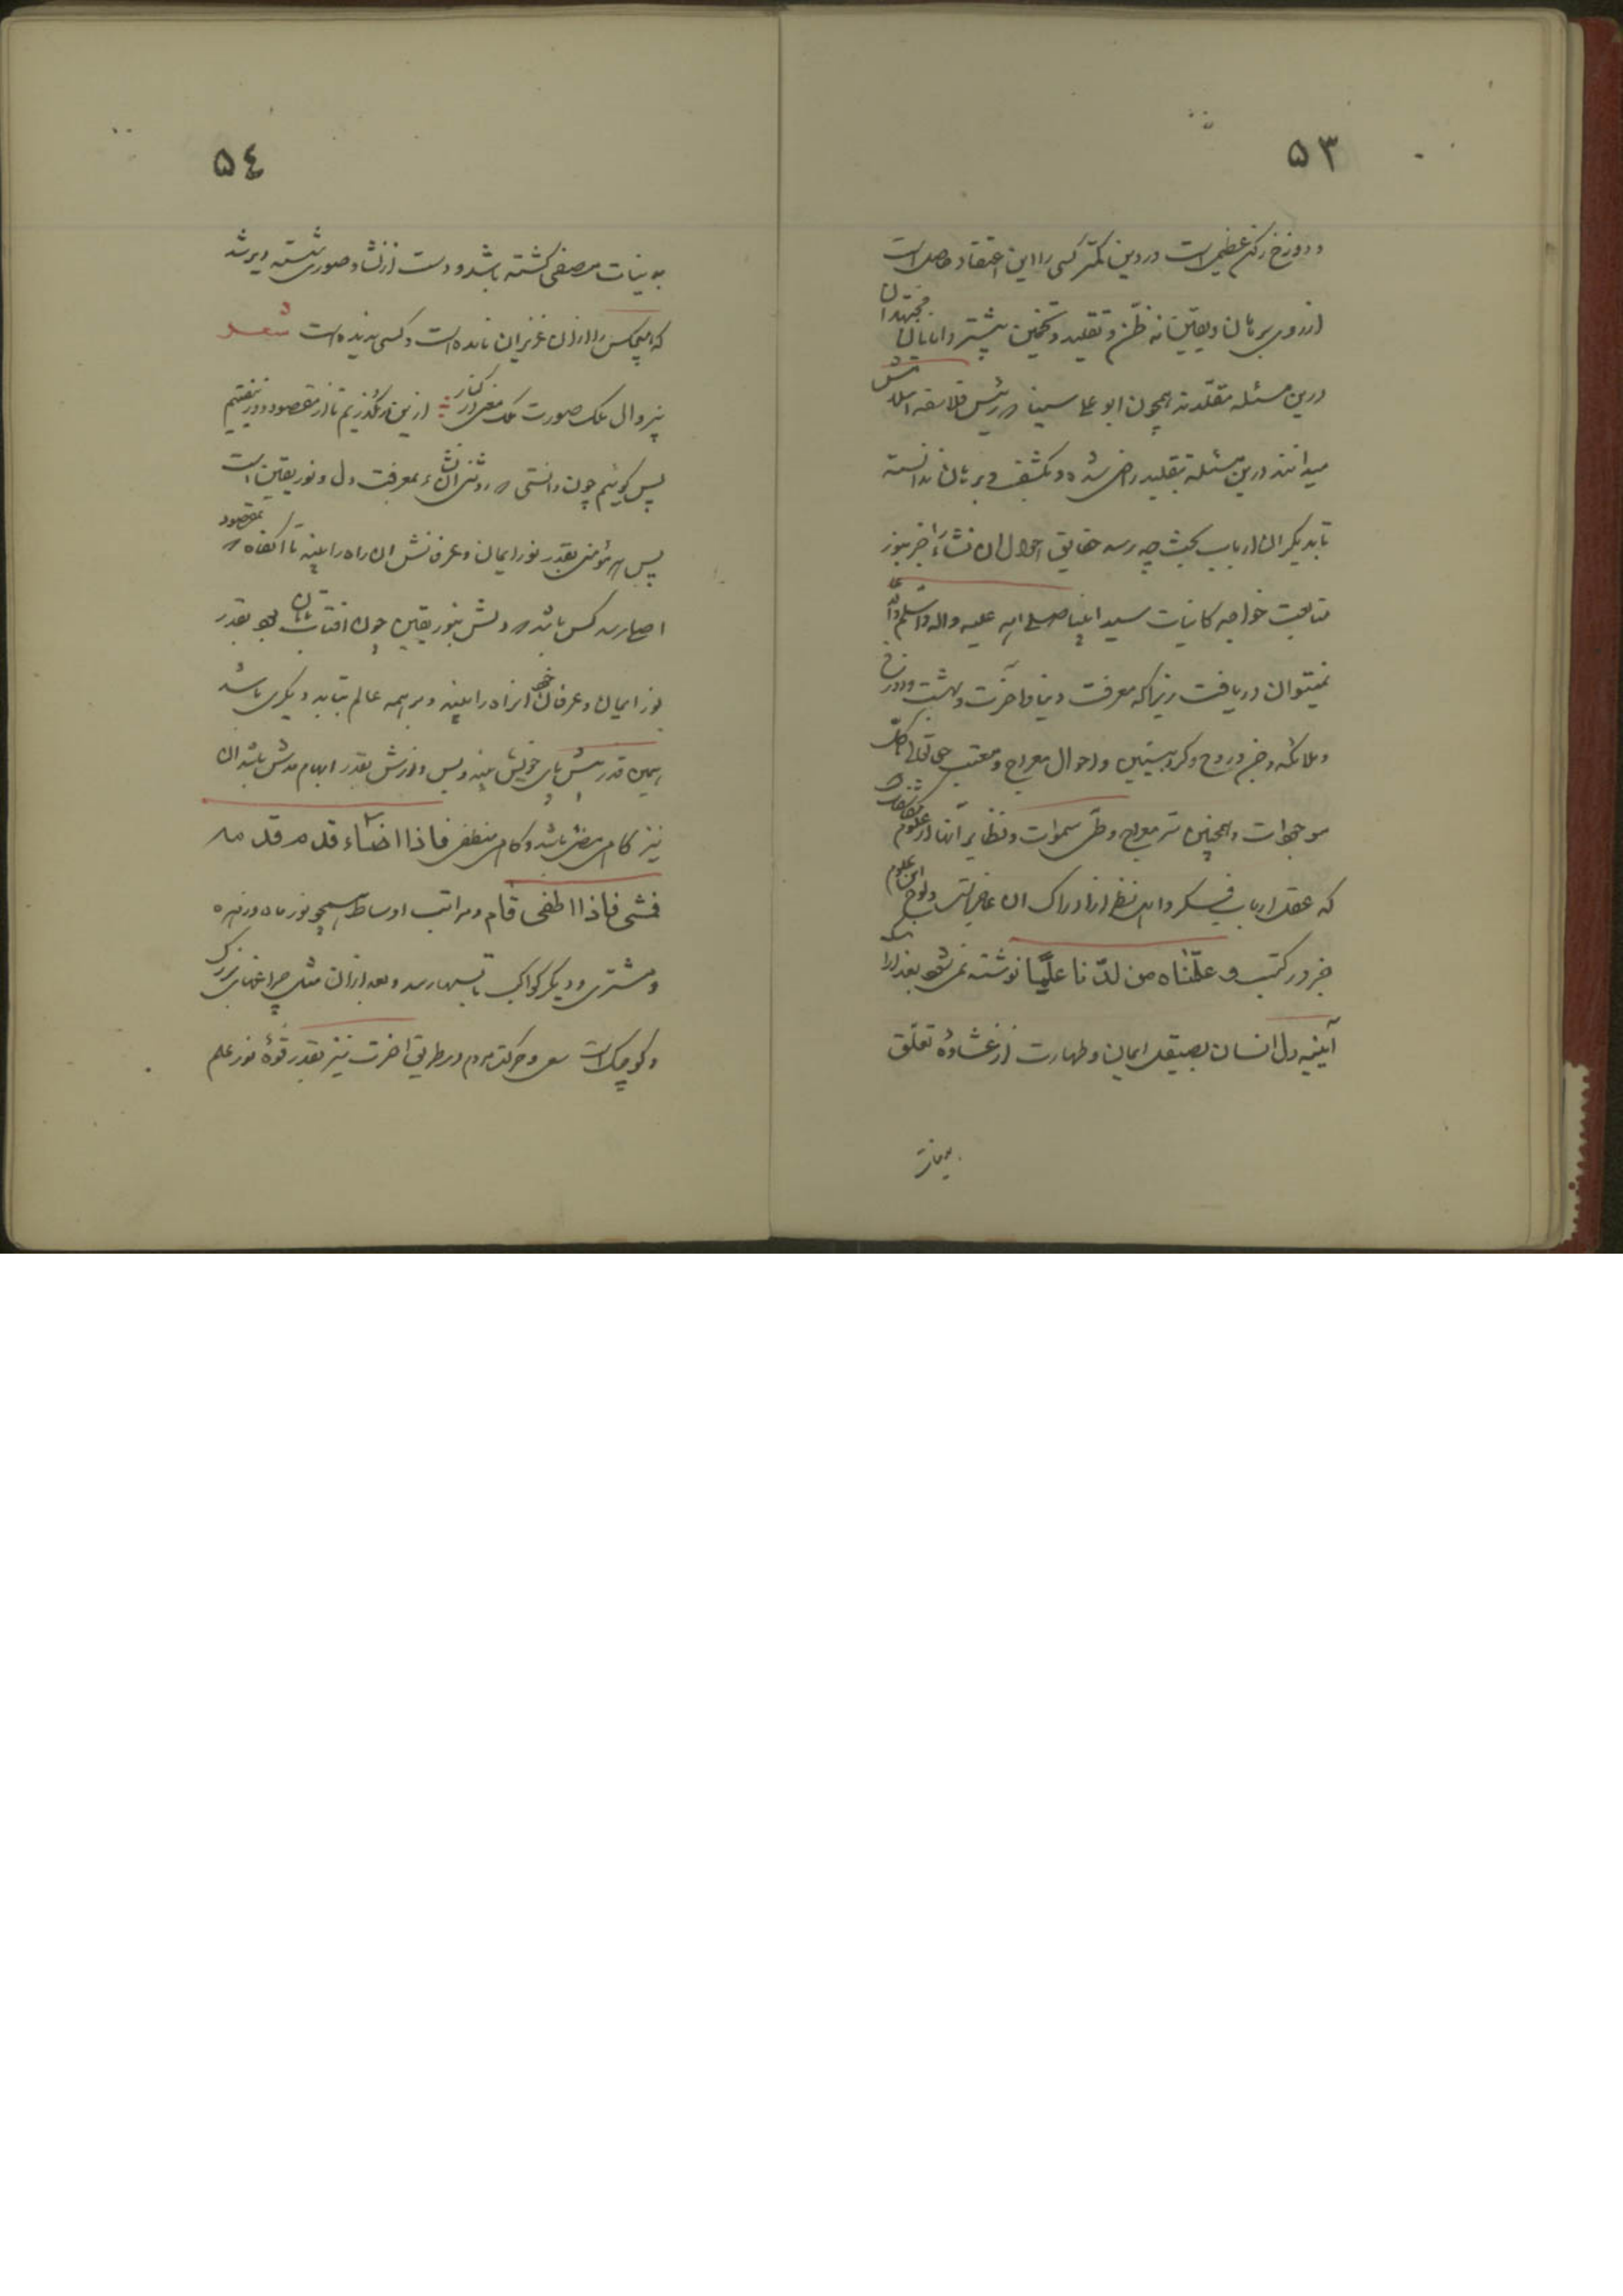 ۵۳
و دوزخ رکن عظیم است در دین کمتر کسی را این اعتقاد حاصل است
از روی برهان و یقین نه ظن و تقلید و تخمین بیشتر دانایان مجتهدان
درین مسئله مقلدند همچون ابو علی سینا که رئیس فلاسفه اسلامش
میدانند درین مسئله بتقلید راضی شده و بکشف و برهان ندانسته
تا بدیگران از ارباب بحث چه رسد حقایق احوال ان نشاء را جز بنور
متابعت خواجه کاینات سید انبیا صلی الله علیه واله وسلم
نمیتوان دریافت زیرا که معرفت دنیا و آخرت و بهشت و دوزخ
و ملائکه و جن و روح و کروبیین و احوال معراج و معیت حق تعالی با کل
موجودات و همچنین سر معراج و طی سموات و نظایر آنها از علوم مکاشفات
که عقل ارباب فکر و اهل نظر از ادراک ان عاجز است و لوح این علوم
جز در کتب و علّمناه من لدنا علما نوشته نمی شود بعد از آنکه
آیینه دل انسان بصیقل ایمان و طهارت از غشاوه تعلق
۵٤
مصفی گشته باشد و دست از نشاء صوری شسته
که هیچکس را از ان عزیزان مانده است و کسی ندیده است شعر
ملک صورت ملک معنی در کنار ازین بگذریم تا از مقصود دور نیفتیم
پس گوئیم چون دانستی که روشنی آن نشاء بمعرفت دل و نور یقین است
پس هر مؤمنی بقدر نور ایمان و عرفانش ان راه را بیند تا آنگاه که بمقصود
اصلی رسد کس باشد که دلش بنور یقین چون افتاب تابان بود بقدر
نور ایمان و عرفان خود انراه را بیند و بر همه عالم بتابد و یکی باشد
همین قدر پیش پای خویش بیند و بس و نورش بقدر ابهام قدمش باشد ان
نیز گاهی مضی باشد و گاهی منطفی فاذا اضاء قدم قدمه
فمشی فاذا اطفی قام و مراتب اوساط همچو نور ماه و زهره
و مشتری و دیگر کواکب تا بسها رسد و بعد از ان مثل چراغهای بزرگ
و کوچک است سعی و حرکت مردم در طریق اخرت نیز بقدر قوة نور علم